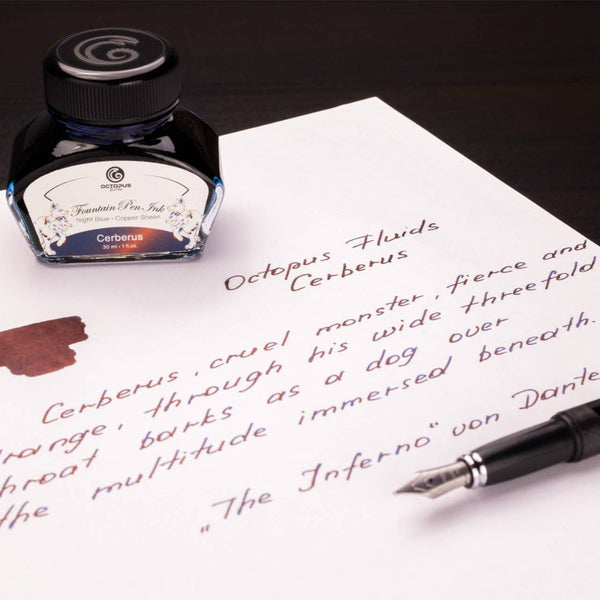 OCTOPUS
FLUIDS
Fountain Pen Ink
Night Blue - Copper Sheen
Cerberus
30 ml - 1 fl.oz.
Octopus Fluids
Cerberus
Cerberus, cruel monster, fierce and
trange, through his wide threefold
hroat barks as a dog over
the multitude immersed beneath.
„The Inferno“ von Dante